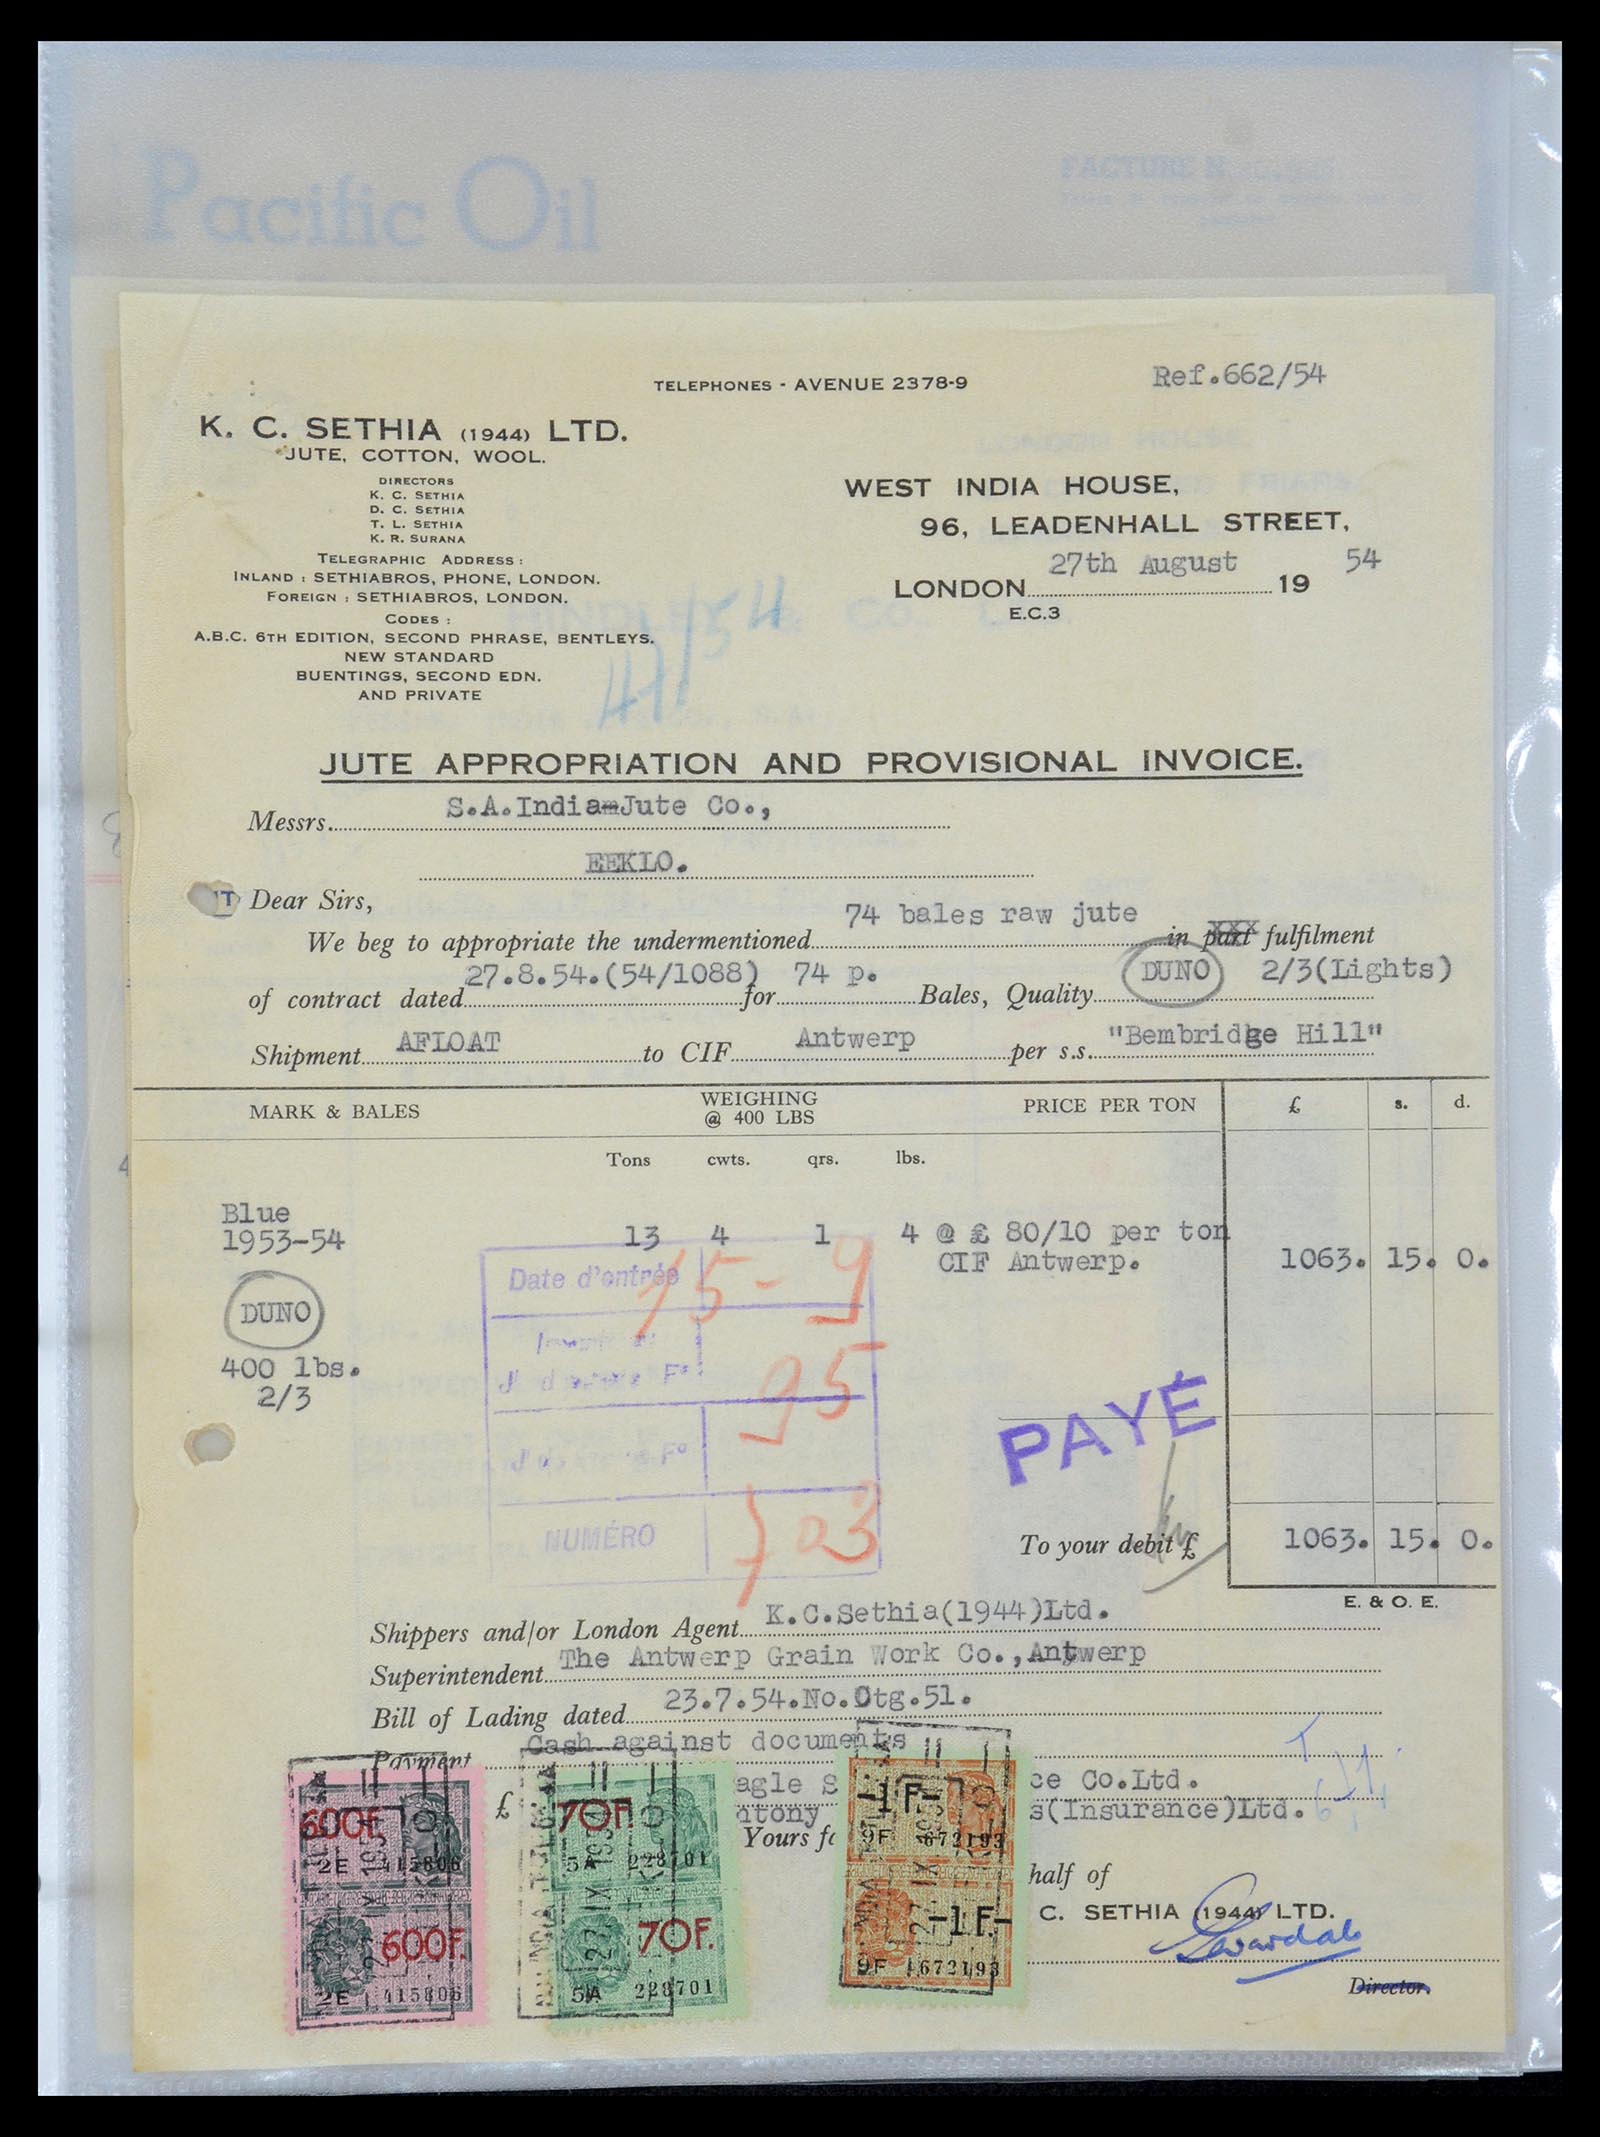 Pacific Oil
FACTURE N
TELEPHONES - AVENUE 2378-9
Ref.662/54
K. C. SETHIA (1944) LTD.
JUTE, COTTON, WOOL.
DIRECTORS
K. C. SETHIA
D. C. SETHIA
T. L. SETHIA
K. R. SURANA
TELEGRAPHIC ADDRESS :
INLAND : SETHIABROS, PHONE, LONDON.
FOREIGN : SETHIABROS, LONDON.
CODES :
A.B.C. 6TH EDITION, SECOND PHRASE, BENTLEYS.
NEW STANDARD
BUENTINGS, SECOND EDN.
AND PRIVATE
WEST INDIA HOUSE,
96, LEADENHALL STREET,
LONDON 27th August 19 54
E.C.3
JUTE APPROPRIATION AND PROVISIONAL INVOICE.
Messrs. S.A.India-Jute Co.,
EEKLO.
Dear Sirs,
We beg to appropriate the undermentioned 74 bales raw jute in part fulfilment
of contract dated 27.8.54.(54/1088) for 74 p. Bales, Quality DUNO 2/3(Lights)
Shipment AFLOAT to CIF Antwerp per s.s. "Bembridge Hill"
MARK & BALES WEIGHING @ 400 LBS PRICE PER TON £ s. d.
Tons cwts. qrs. lbs.
Blue
1953-54 13 4 1 4 @ £ 80/10 per ton
CIF Antwerp. 1063. 15. 0.
DUNO
400 lbs.
2/3
Date d'entrée 15-9
95
NUMÉRO 703
PAYÉ
To your debit £ 1063. 15. 0.
E. & O. E.
Shippers and/or London Agent K.C.Sethia(1944)Ltd.
Superintendent The Antwerp Grain Work Co.,Antwerp
Bill of Lading dated 23.7.54.No.Ctg.51.
Payment Cash against documents
£ agle S ce Co.Ltd.
ntony s(Insurance)Ltd.
Yours fa half of
C. SETHIA (1944) LTD.
Director.
600F.
2E 415806
600F.
2E 415806
70F.
5A 228701
70F.
5A 228701
-1F-
9F 672193
-1F-
9F 672193